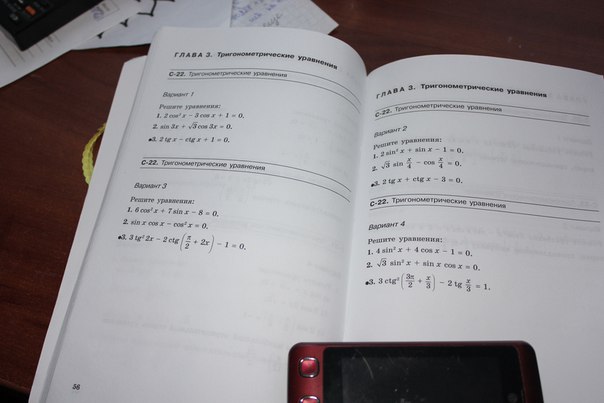 ГЛАВА 3. Тригонометрические уравнения
С-22. Тригонометрические уравнения
Вариант 1
Решите уравнения:
1. 2 cos² x − 3 cos x + 1 = 0.
2. sin 3x + √3 cos 3x = 0.
•3. 2 tg x − ctg x + 1 = 0.
С-22. Тригонометрические уравнения
Вариант 3
Решите уравнения:
1. 6 cos² x + 7 sin x − 8 = 0.
2. sin x cos x − cos² x = 0.
•3. 3 tg² 2x − 2 ctg (π/2 + 2x) − 1 = 0.
58
ГЛАВА 3. Тригонометрические уравнения
С-22. Тригонометрические уравнения
Вариант 2
Решите уравнения:
1. 2 sin² x + sin x − 1 = 0.
2. √3 sin x/4 − cos x/4 = 0.
•3. 2 tg x + ctg x − 3 = 0.
С-22. Тригонометрические уравнения
Вариант 4
Решите уравнения:
1. 4 sin² x + 4 cos x − 1 = 0.
2. √3 sin² x + sin x cos x = 0.
•3. 3 ctg² (3π/2 + x/3) − 2 tg x/3 = 1.